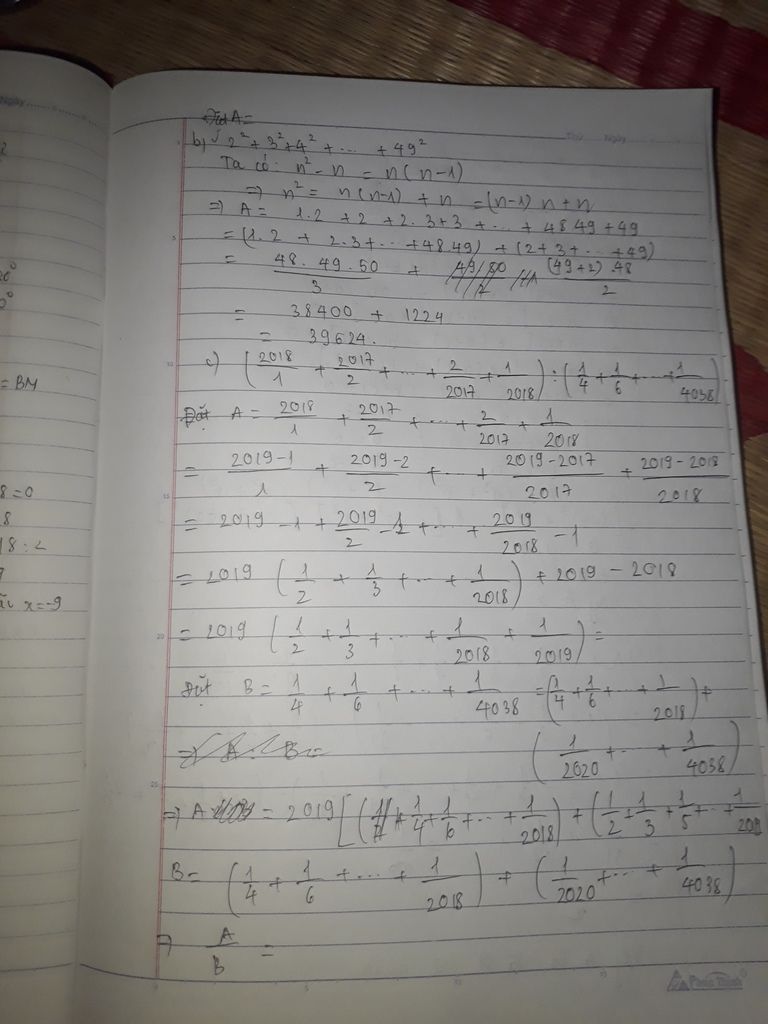 Đặt A =
b) 2² + 3² + 4² + ... + 49²
Ta có: n² - n = n(n-1)
⇒ n² = n(n-1) + n = (n-1)n + n
⇒ A = 1.2 + 2 + 2.3 + 3 + ... + 48.49 + 49
= (1.2 + 2.3 + ... + 48.49) + (2 + 3 + ... + 49)
= 48.49.50/3 + (49+2).48/2
= 38400 + 1224
= 39624.
c) (2018/1 + 2017/2 + ... + 2/2017 + 1/2018) : (1/4 + 1/6 + ... + 1/4038)
Đặt A = 2018/1 + 2017/2 + ... + 2/2017 + 1/2018
= 2019-1/1 + 2019-2/2 + ... + 2019-2017/2017 + 2019-2018/2018
= 2019 - 1 + 2019/2 - 1 + ... + 2019/2018 - 1
= 2019 (1/2 + 1/3 + ... + 1/2018) + 2019 - 2018
= 2019 (1/2 + 1/3 + ... + 1/2018 + 1/2019) =
Đặt B = 1/4 + 1/6 + ... + 1/4038 = (1/4 + 1/6 + ... + 1/2018) +
⇒ A : B =
(1/2020 + ... + 1/4038)
⇒ A = 2019 [(1/4 + 1/6 + ... + 1/2018) + (1/2 + 1/3 + 1/5 + ... + 1/2019
B = (1/4 + 1/6 + ... + 1/2018) + (1/2020 + ... + 1/4038)
⇒ A/B =
= BM
8 = 0
x = -9